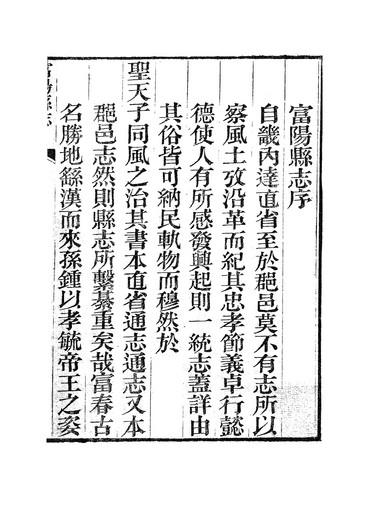 富陽縣志序
自畿內達直省至於郡邑莫不有志所以
察風土攷沿革而紀其忠孝節義卓行懿
德使人有所感發興起則一統志蓋詳由
其俗皆可納民軌物而穆然於
聖天子同風之治其書本直省通志通志又本
郡邑志然則縣志所繫綦重矣哉富春古
名勝地繇漢而來孫鍾以孝毓帝王之姿
富陽縣志